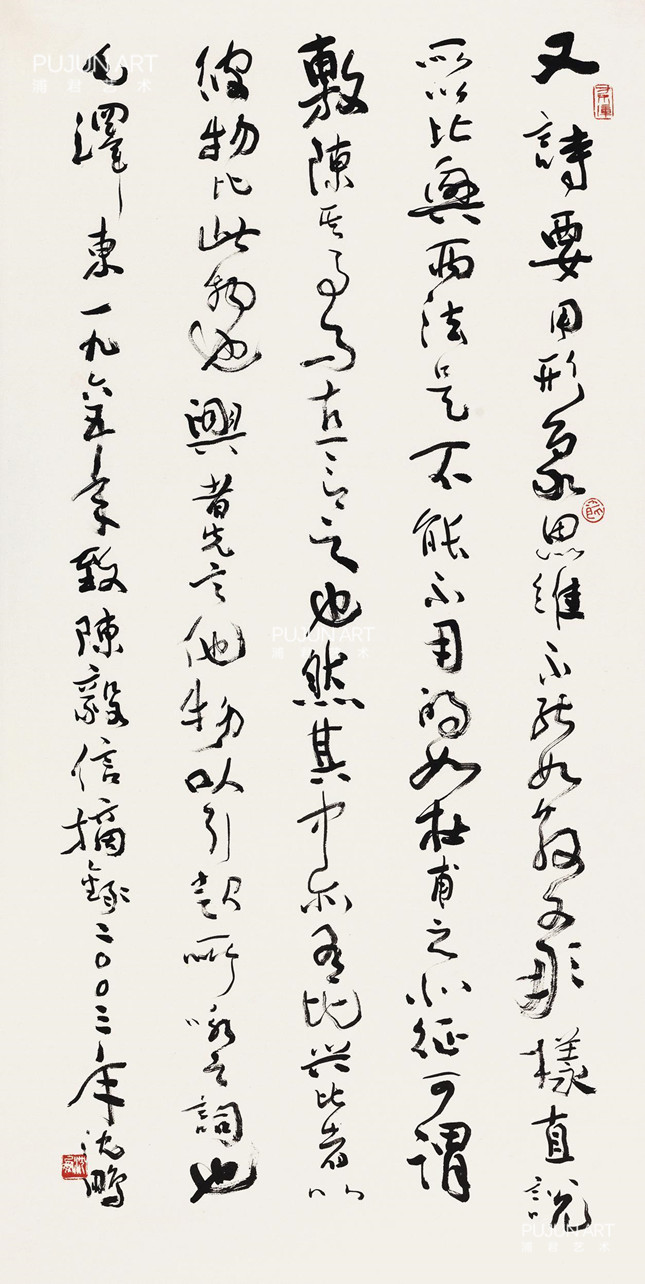 又詩要用形象思維不能如散文那樣直說
所以比興兩法是不能不用的如杜甫之北征可謂
敷陳其事而直言之也然其中亦有比兴比者以
彼物比此物也興者先言他物以引起所咏之詞也
毛澤東一九六五年致陳毅信摘錄二〇〇三年沈鵬
PUJUN ART
浦君艺术
PUJUN ART
浦君艺术
PUJUN ART
浦君艺术